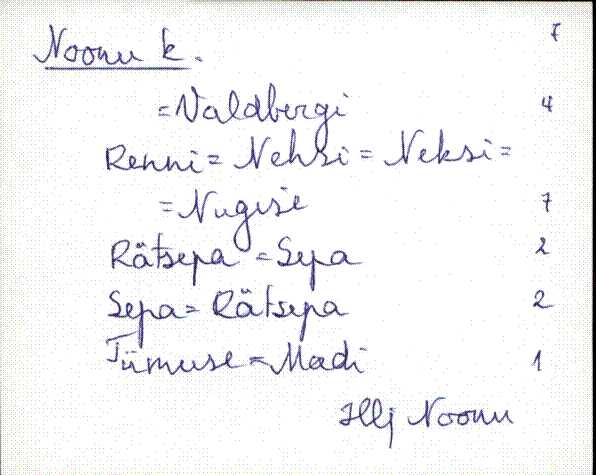 Noonu k. 7
=Valdbergi 4
Renni = Nehsi = Neksi =
=Nugise 7
Rätsepa = Sepa 2
Sepa = Rätsepa 2
Tümuse = Madi 1
Hlj Noonu